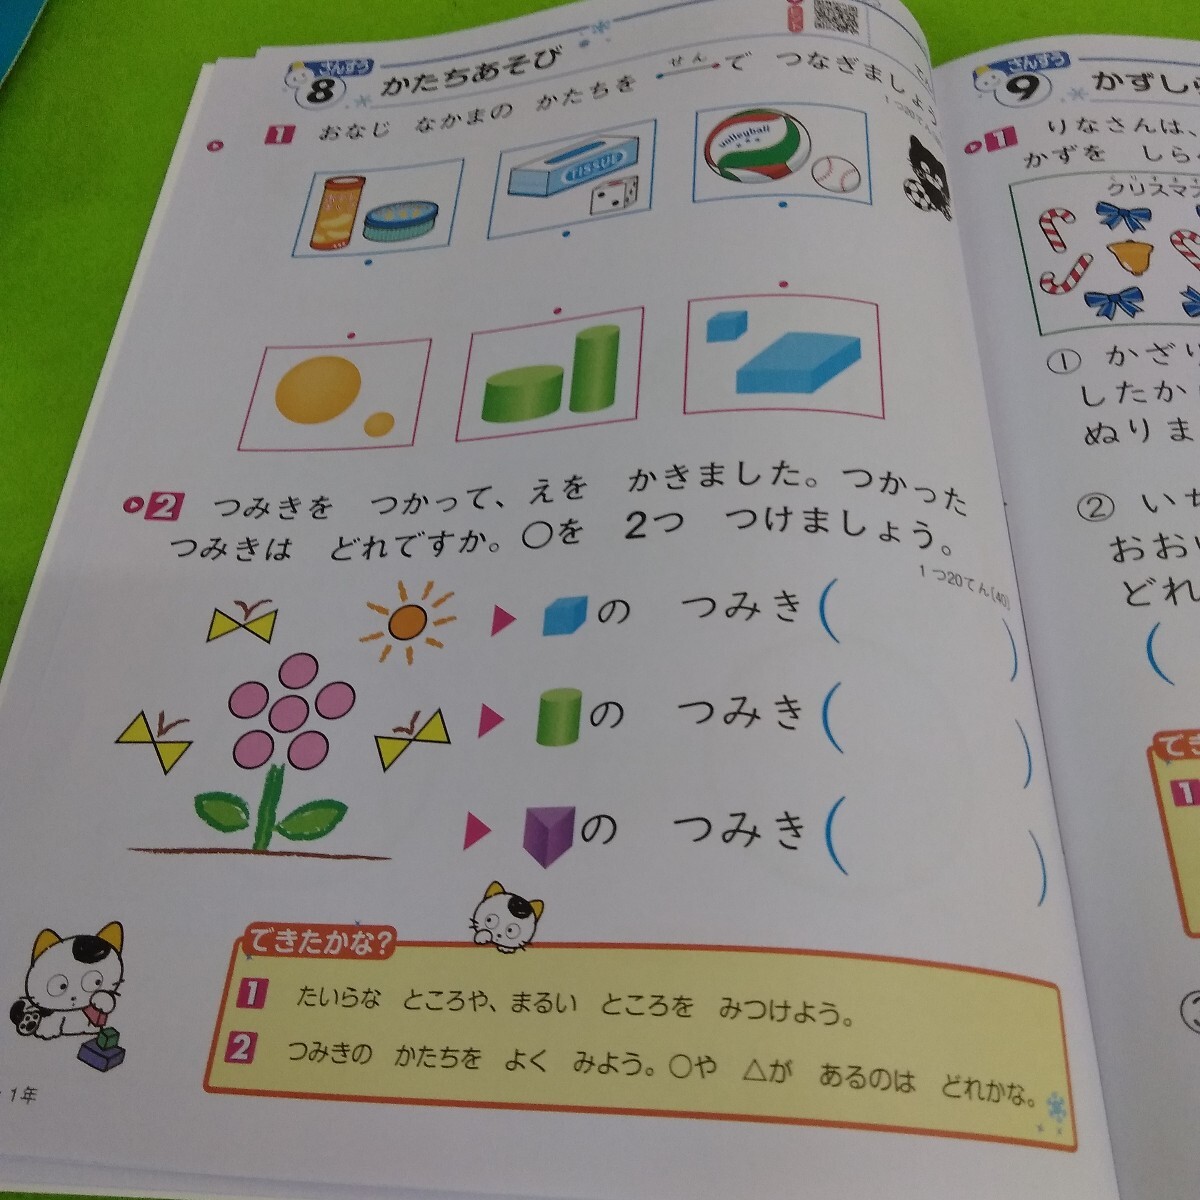 さんすう
8 かたちあそび
1 おなじ なかまの かたちを せん で つなぎましょう
1つ20てん
TISSUE
volleyball
2 つみきを つかって、えを かきました。つかった
つみきは どれですか。○を 2つ つけましょう。
1つ20てん[40]
の つみき( )
の つみき( )
の つみき( )
できたかな?
1 たいらな ところや、まるい ところを みつけよう。
2 つみきの かたちを よく みよう。○や △が あるのは どれかな。
1年
さんすう
9 かずしら
1 りなさんは、
かずを しら
クリスマ
① かざり
したか
ぬりま
② いち
おおい
どれ
(
でき
1